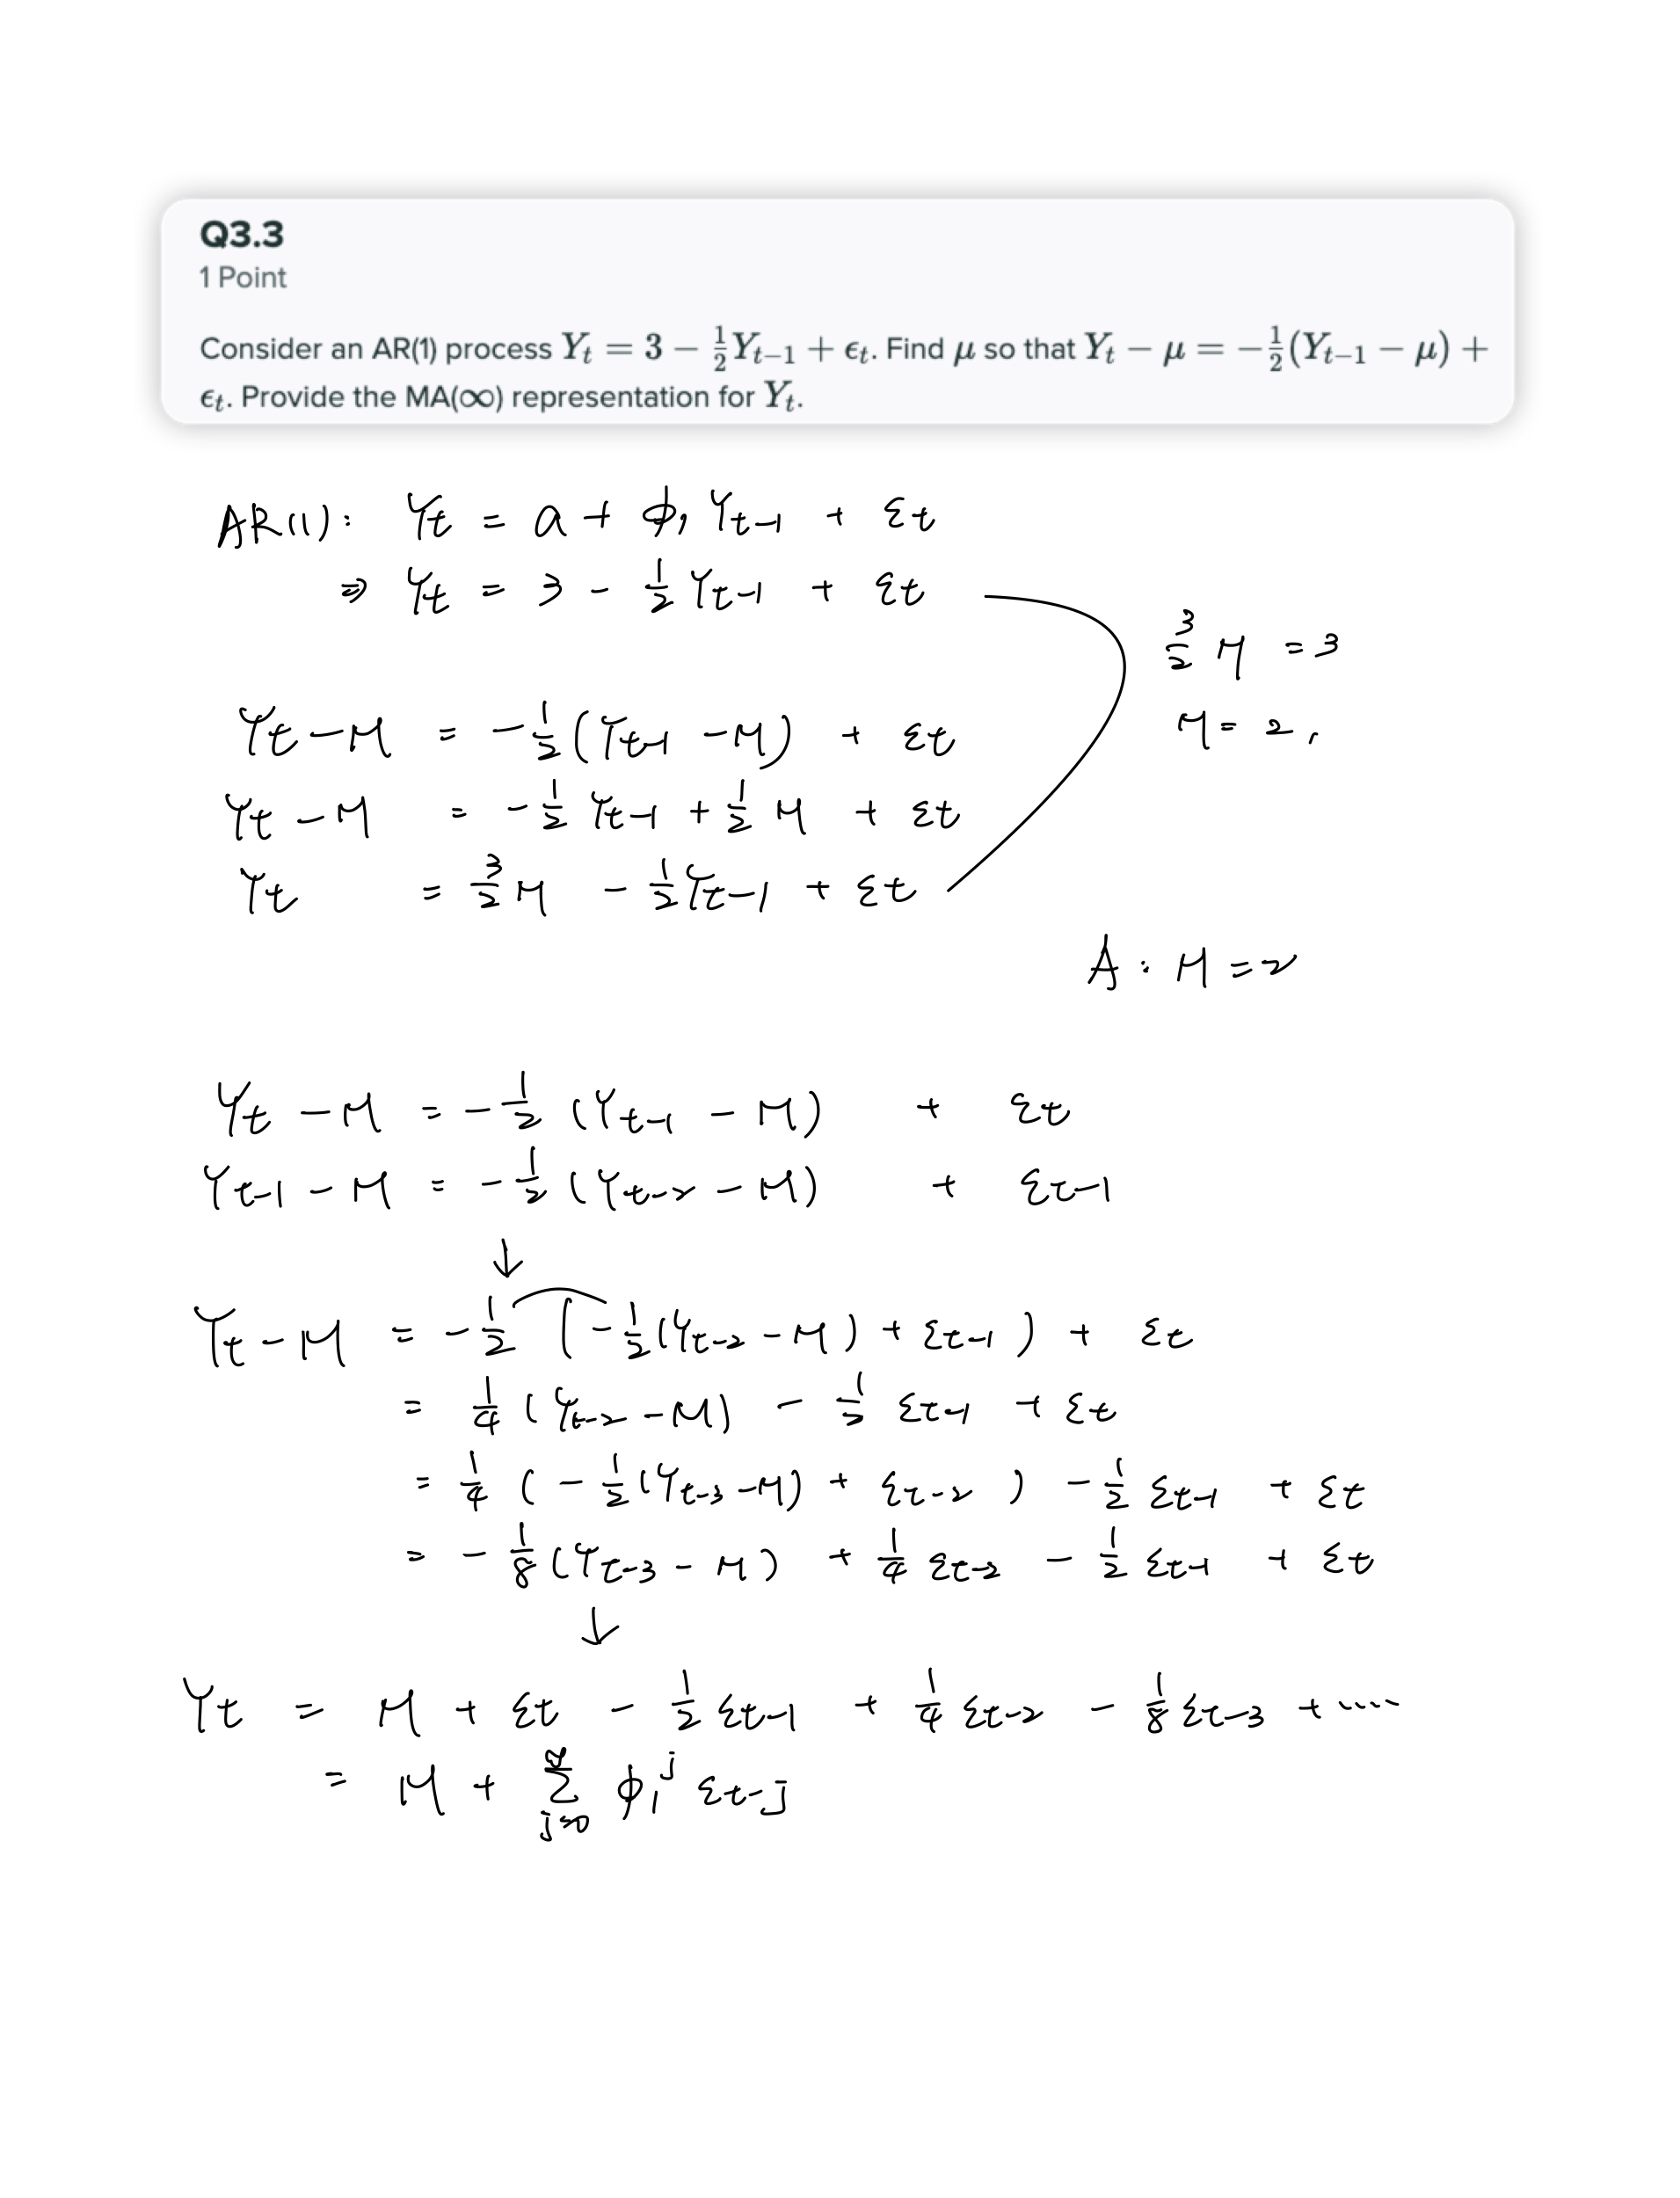 Q3.3
1 Point
Consider an AR(1) process Y_t = 3 − 1/2 Y_{t−1} + ϵ_t. Find μ so that Y_t − μ = −1/2(Y_{t−1} − μ) +
ϵ_t. Provide the MA(∞) representation for Y_t.
AR(1): Y_t = a + ϕ_1 Y_{t-1} + ε_t
⇒ Y_t = 3 - 1/2 Y_{t-1} + ε_t
3/2 M = 3
M = 2,
Y_t - M = -1/2 (Y_{t-1} - M) + ε_t
Y_t - M = -1/2 Y_{t-1} + 1/2 M + ε_t
Y_t = 3/2 M - 1/2 Y_{t-1} + ε_t
A : M = 2
Y_t - M = -1/2 (Y_{t-1} - M) + ε_t
Y_{t-1} - M = -1/2 (Y_{t-2} - M) + ε_{t-1}
↓
Y_t - M = -1/2 (-1/2 (Y_{t-2} - M) + ε_{t-1}) + ε_t
= 1/4 (Y_{t-2} - M) - 1/2 ε_{t-1} + ε_t
= 1/4 (-1/2 (Y_{t-3} - M) + ε_{t-2}) - 1/2 ε_{t-1} + ε_t
= -1/8 (Y_{t-3} - M) + 1/4 ε_{t-2} - 1/2 ε_{t-1} + ε_t
↓
Y_t = M + ε_t - 1/2 ε_{t-1} + 1/4 ε_{t-2} - 1/8 ε_{t-3} + .....
= M + Σ_{j=0}^{∞} ϕ_1^j ε_{t-j}